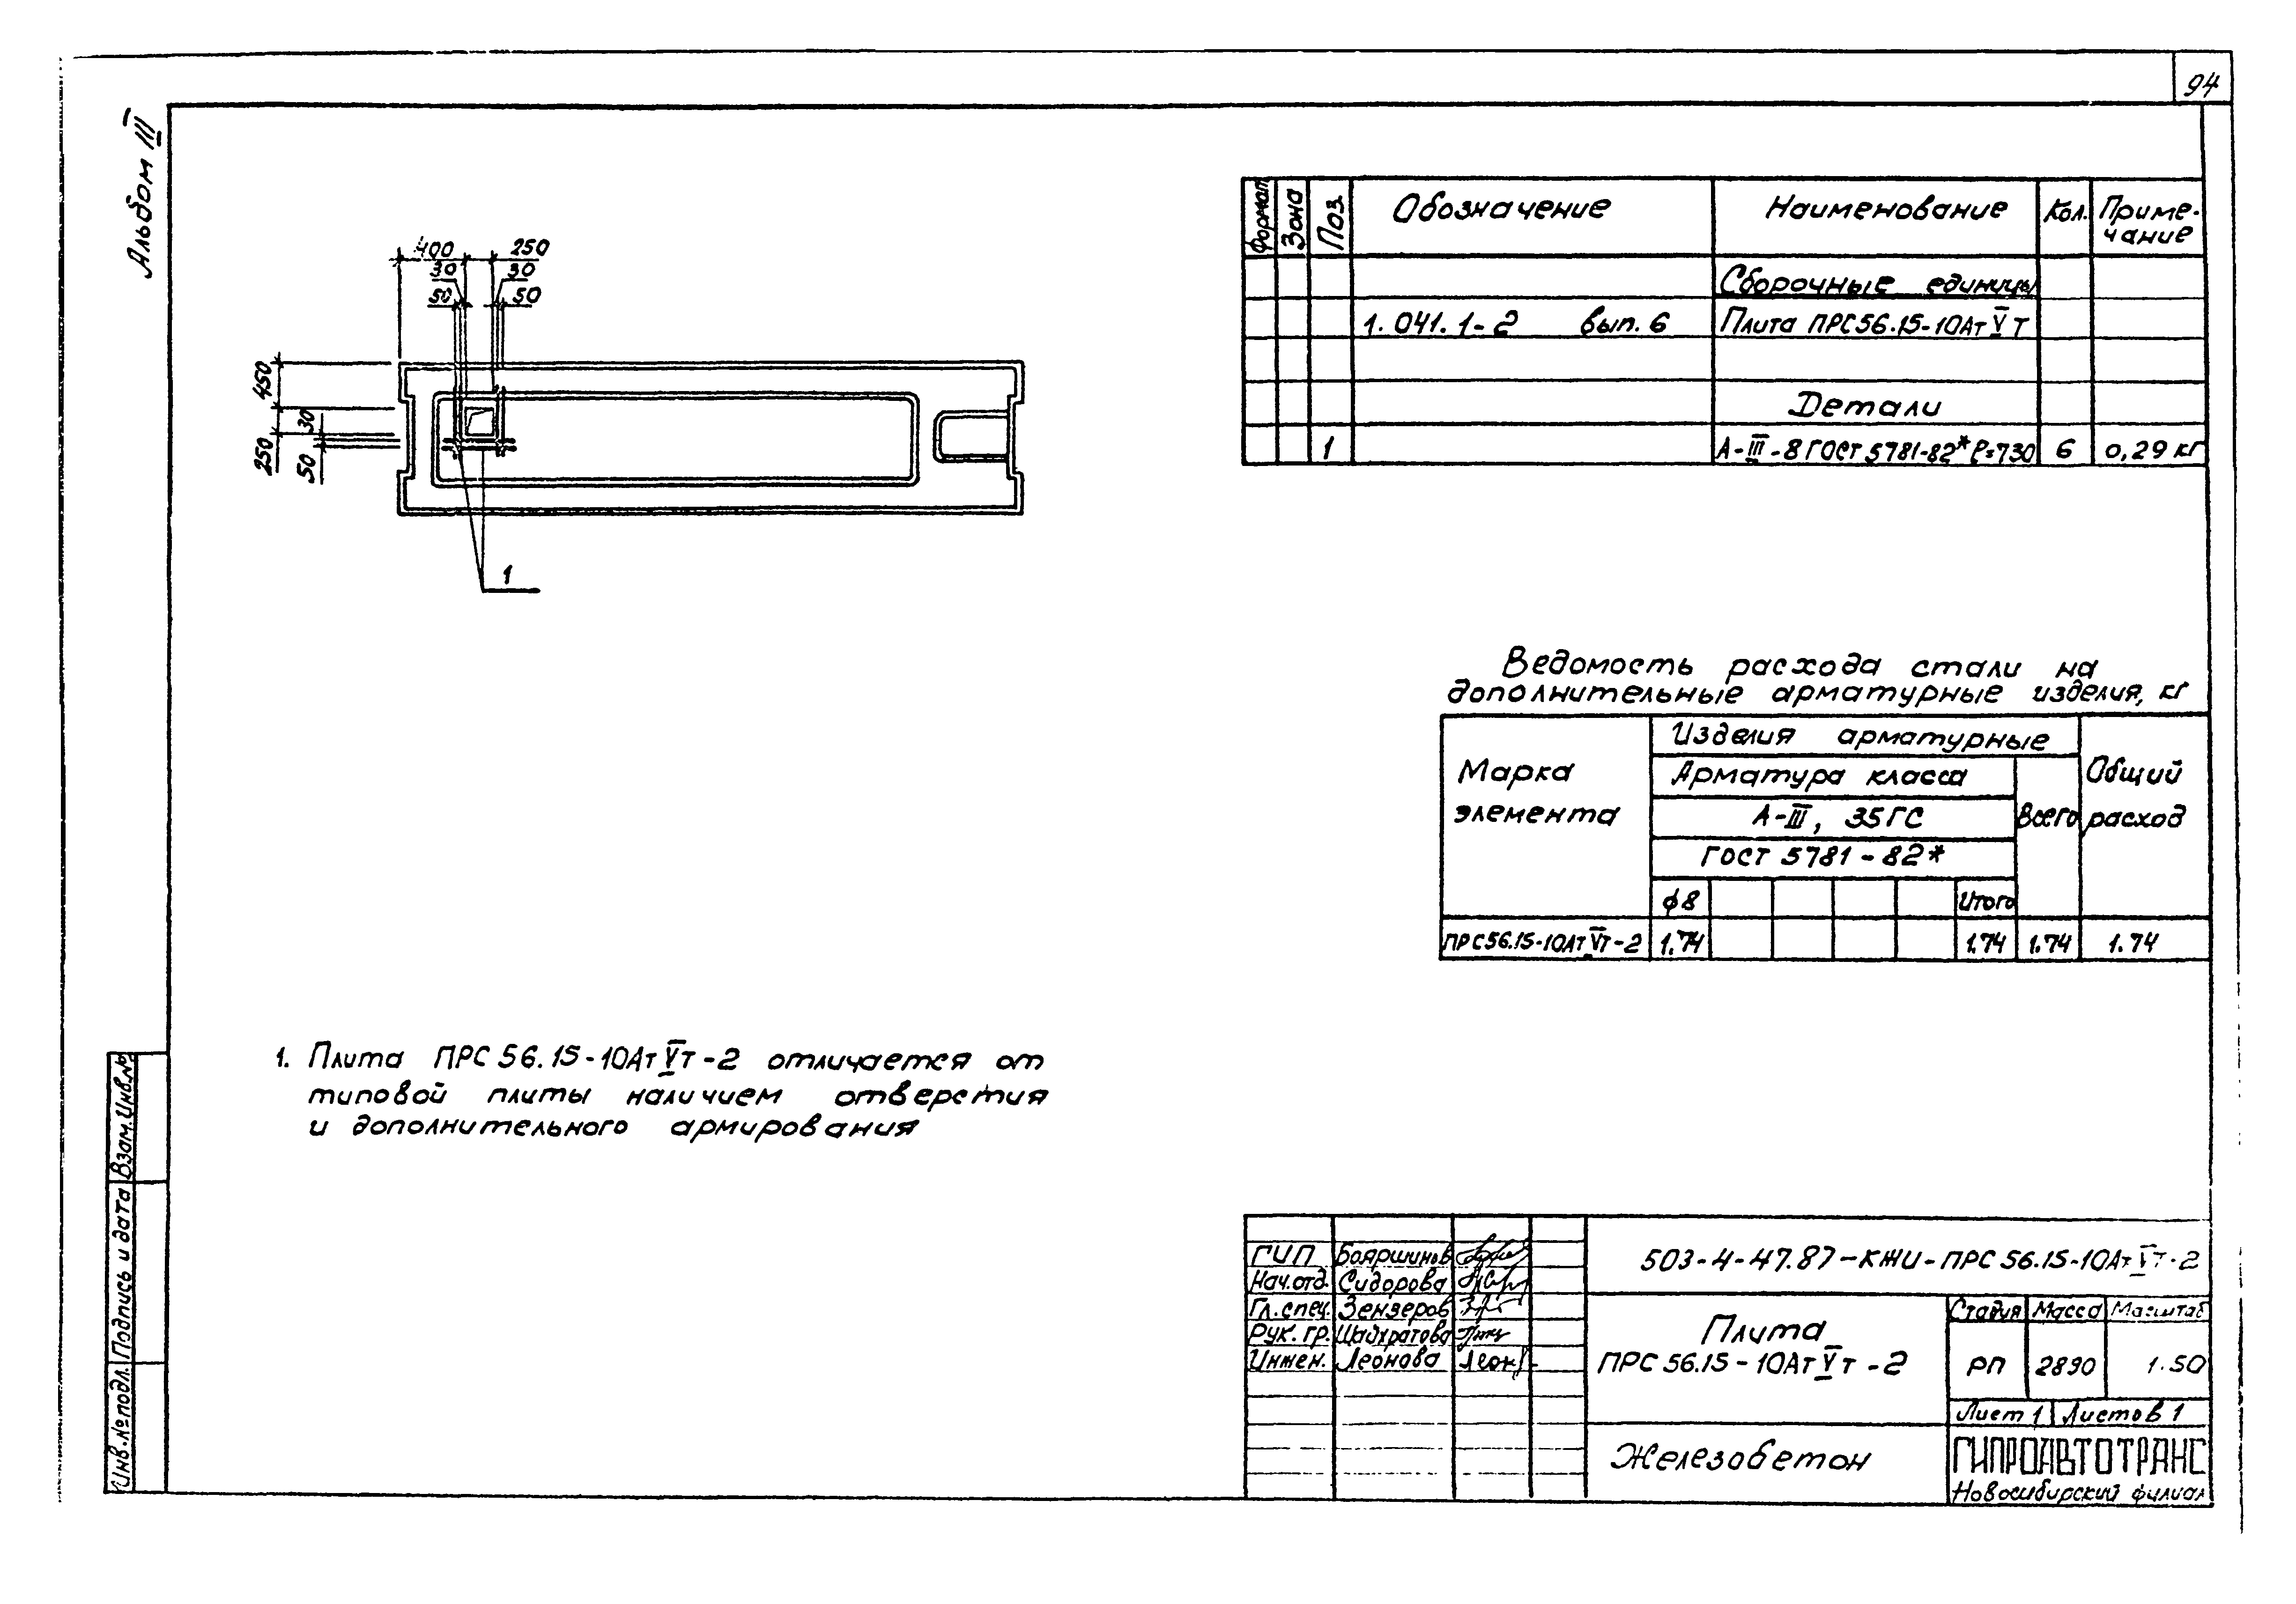 94
Альбом III
400 250
30 30
50 50
450
30
250
50
1
Формат Зона Поз. Обозначение Наименование Кол. Приме-
чание
Сборочные единицы
1.041.1-2 вып. 6 Плита ПРС56.15-10АтVТ
Детали
1 А-III-8 ГОСТ 5781-82* ℓ=730 6 0,29 кг
Ведомость расхода стали на
дополнительные арматурные изделия, кг
Марка
элемента
Изделия арматурные
Общий
расход
Арматура класса
Всего
А-III, 35ГС
ГОСТ 5781-82*
ϕ8 Итого
ПРС56.15-10АтVт-2 1.74 1.74 1.74 1.74
1. Плита ПРС 56.15-10АтVт-2 отличается от
типовой плиты наличием отверстия
и дополнительного армирования
Взам.Инв.№
Подпись и дата
Инв.№подл.
ГИП Бояршинов
Нач.отд. Сидорова
Гл.спец. Зензеров
Рук. гр. Шайхратова
Инжен. Леонова
503-4-47.87-КЖИ-ПРС 56.15-10АтVт-2
Плита
ПРС 56.15-10АтVт-2
Стадия Масса Масштаб
РП 2890 1.50
Лист 1 Листов 1
Железобетон
ГИПРОАВТОТРАНС
Новосибирский филиал